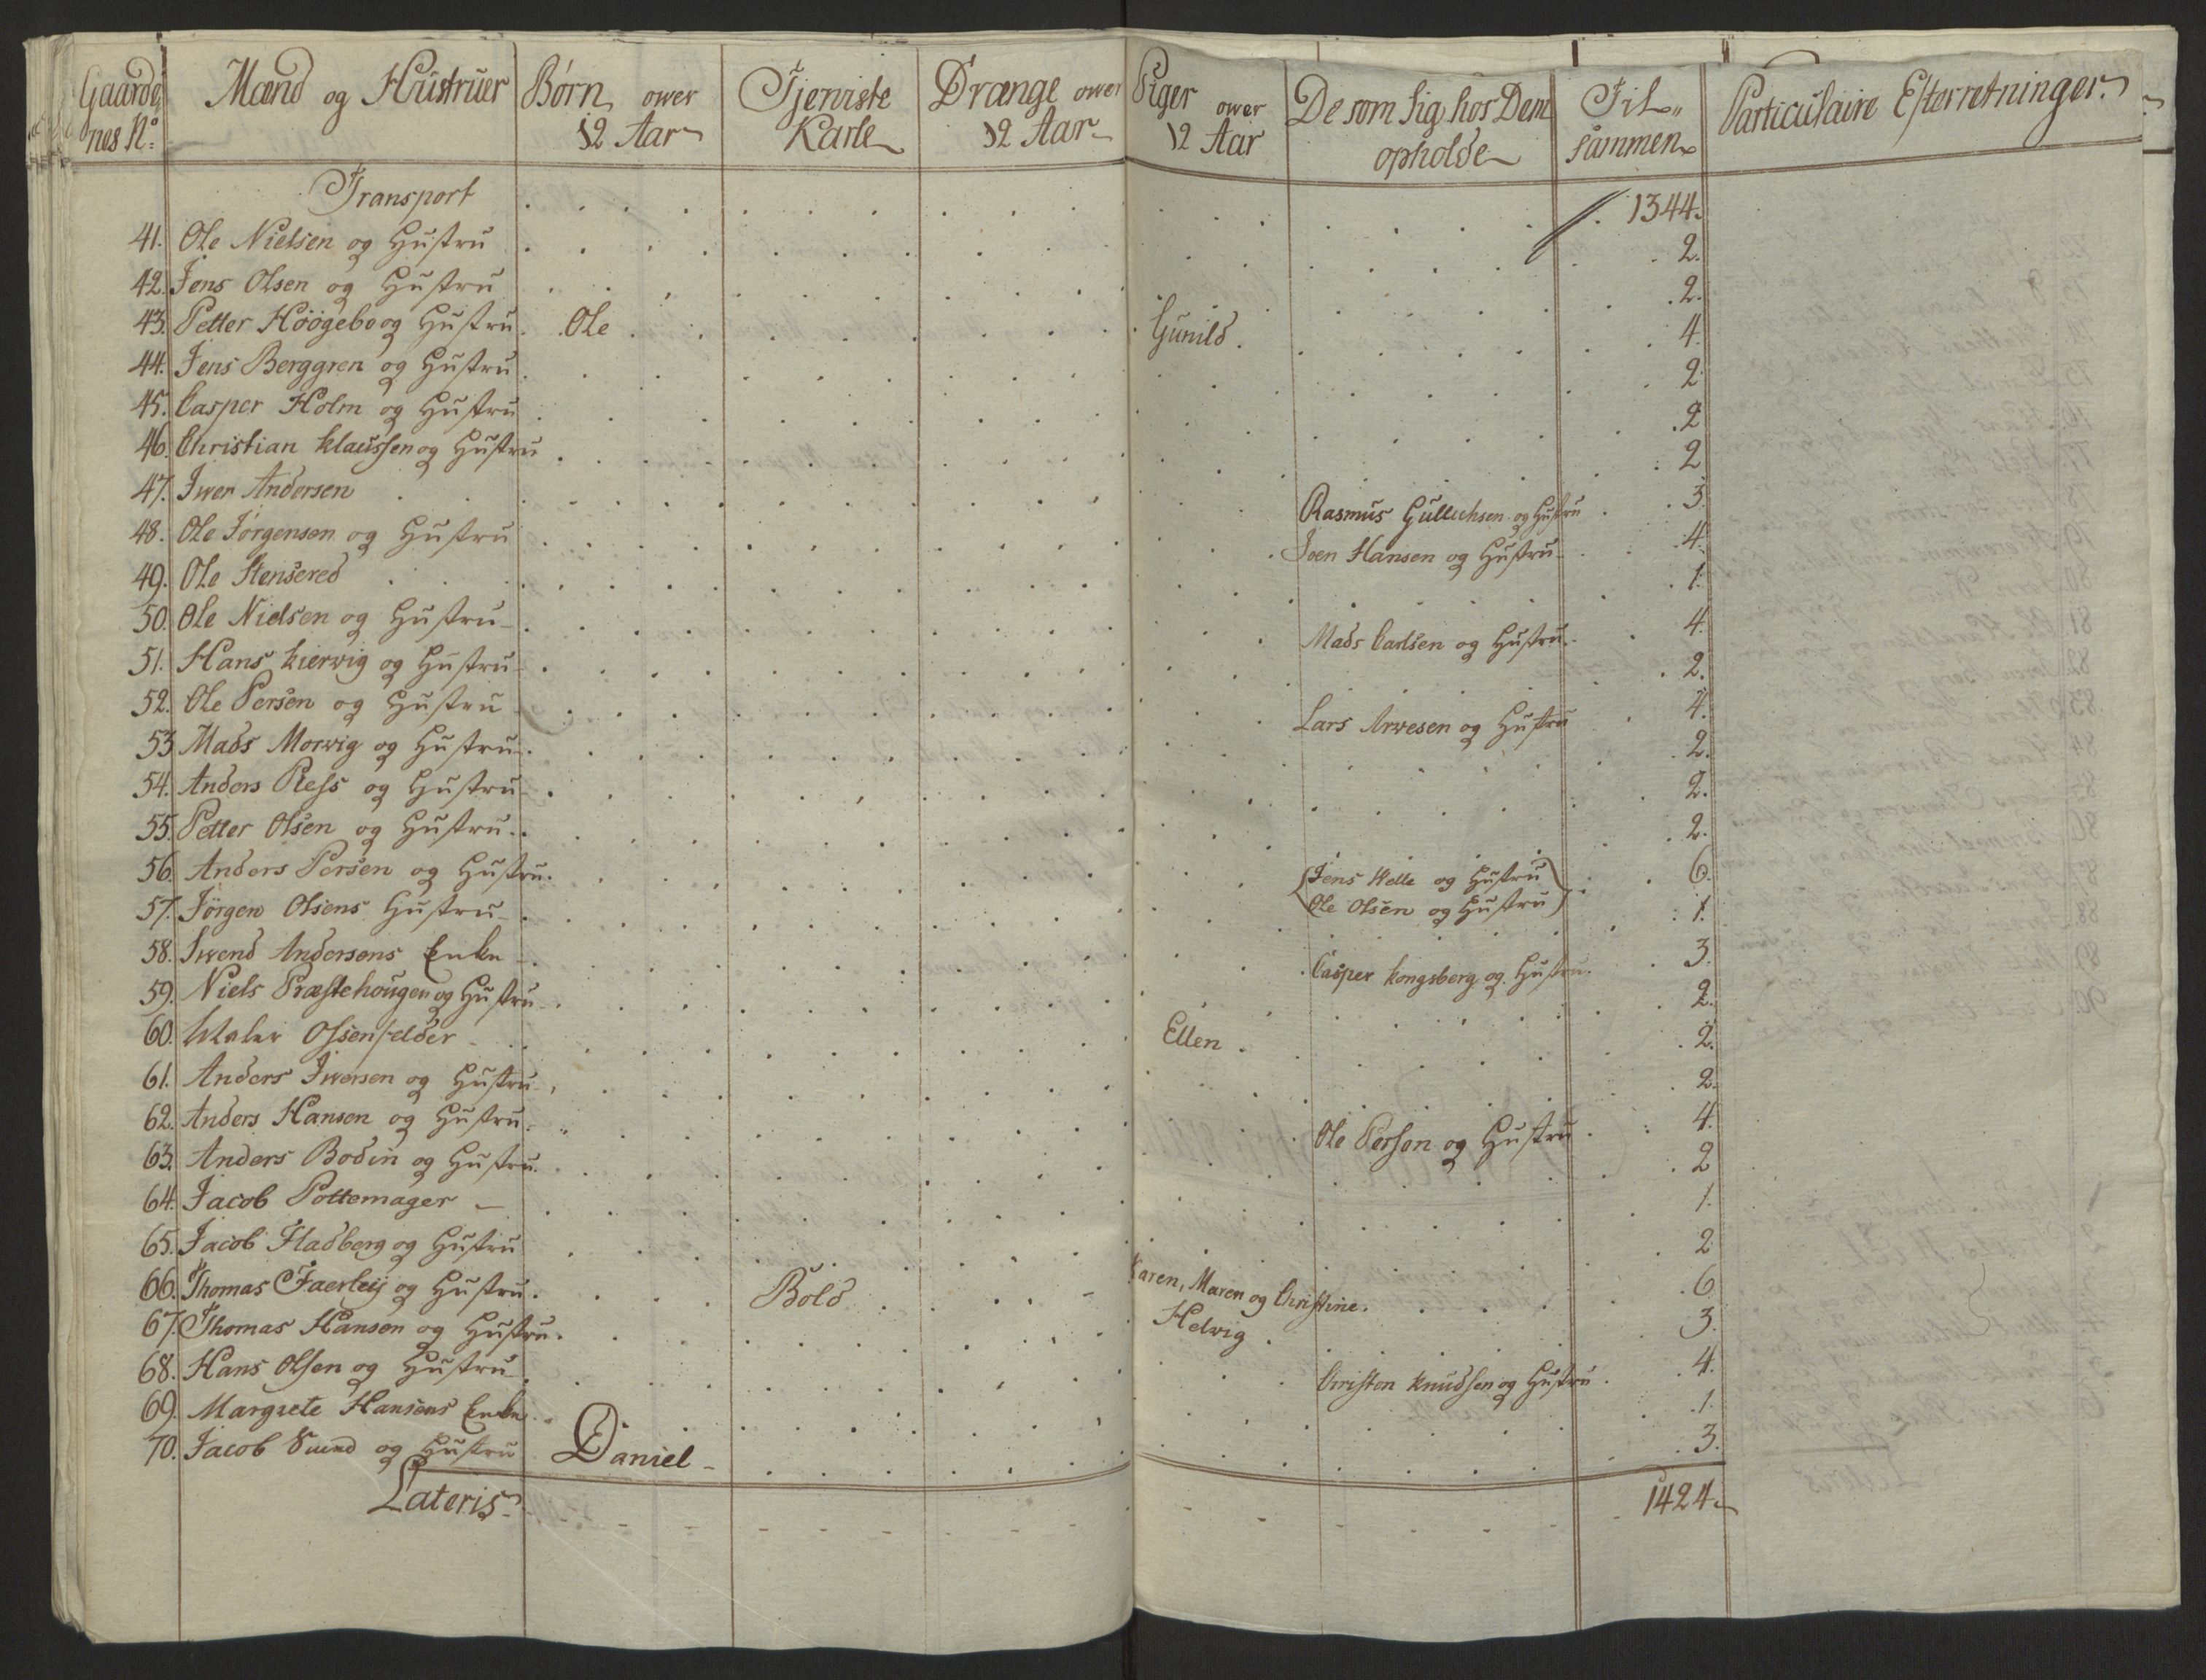 Gaarde nes No: Mænd og Hustruer Børn ower 12 Aar Tjeniste Karle Drænge ower 12 Aar Piger ower 12 Aar De som sig hos Dem opholde Til„ sammen Particulaire Efterretninger
Transport 1344.
41. Ole Nielsen og Hustru 2.
42. Jens Olsen og Hustru 2.
43. Petter Höögebo og Hustru Ole Gunild 4.
44. Jens Berggren og Hustru 2.
45. Casper Holm og Hustru 2
46. Christian Klaussen og Hustru 2
47. Iwer Andersen Rasmus Gullichsen og Hustru 3.
48. Ole Jörgensen og Hustru Joen Hansen og Hustru 4.
49. Ole Stensered 1.
50. Ole Nielsen og Hustru Mads Carlsen og Hustru 4.
51. Hans Kierwig og Hustru 2.
52. Ole Persen og Hustru Lars Arwesen og Hustru 4.
53 Mads Morwig og Hustru 2.
54. Anders Ress og Hustru 2.
55. Petter Olsen og Hustru 2.
56. Anders Persen og Hustru Jens Helle og Hustru 6.
Ole Olsen og Hustru
57. Jörgen Olsens Hustru 1.
58. Swend Andersens Enke Casper Kongsberg og Hustru 3.
59. Niels Præstehougen og Hustru 2.
60. Maler Ossenfelder Ellen 2.
61. Anders Iwersen og Hustru 2.
62. Anders Hansen og Hustru Ole Persen og Hustru 4.
63. Anders Bodin og Hustru 2
64. Jacob Pottemager 1.
65. Jacob Fladberg og Hustru 2
66. Thomas Faerleij og Hustru Bold Karen, Maren og Christine 6.
67. Thomas Hansen og Hustru Helwig 3.
68. Hans Olsen og Hustru Christen Knudsen og Hustru 4.
69. Margrete Hansens Enke 1.
70. Jacob Sund og Hustru Daniel 3.
Lateris 1424.